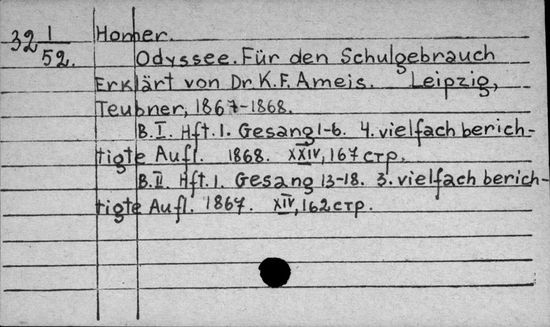 32 1/52. Homer.
Odyssee. Für den Schulgebrauch
Erklärt von Dr. K. F. Ameis. Leipzig,
Teubner, 1867-1868.
B. I. Hft. 1. Gesang 1-6. 4. vielfach berich-
tigte Aufl. 1868. XXIV, 167 стр.
B. II. Hft. 1. Gesang 13-18. 3. vielfach berich-
tigte Aufl. 1867. XIV, 162 стр.